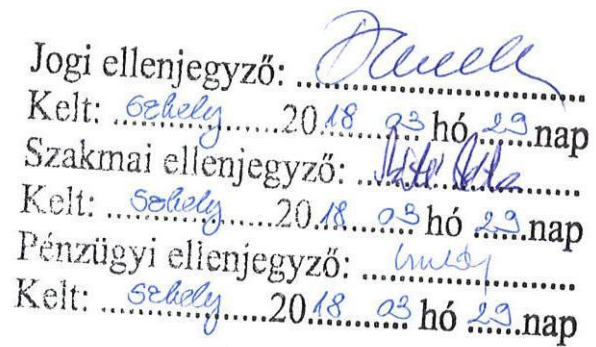 Jogi ellenjegyző:
Kelt: Szhely 2018 03 hó 29 nap
Szakmai ellenjegyző:
Kelt: Szhely 2018 03 hó 29 nap
Pénzügyi ellenjegyző:
Kelt: Szhely 2018 03 hó 29 nap